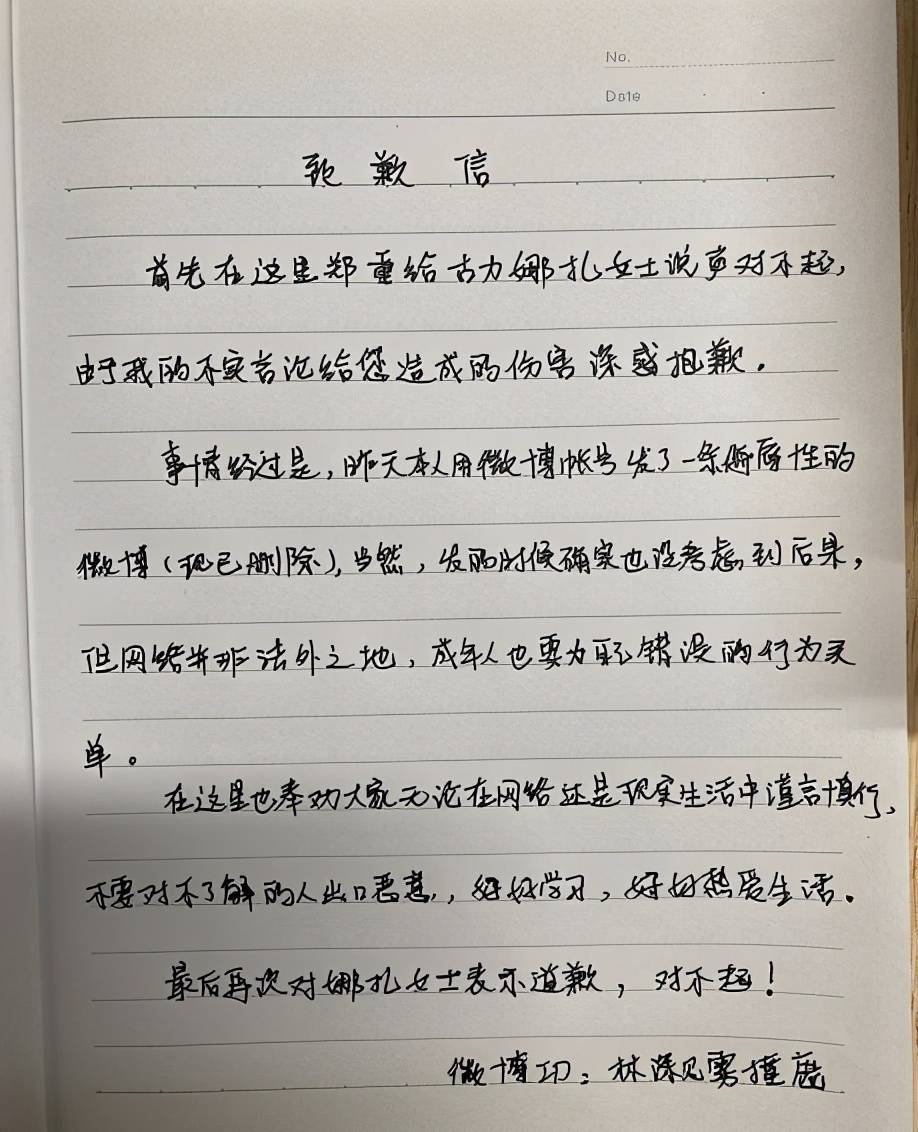 No.
Date
致歉信
首先在这里郑重给古力娜扎女士说声对不起,
由于我的不实言论给您造成的伤害深感抱歉.
事情经过是,昨天本人用微博帐号发了一条侮辱性的
微博(现已删除),当然,发的时候确实也没考虑到后果,
但网络并非法外之地,成年人也要为自己错误的行为买
单。
在这里也奉劝大家无论在网络还是现实生活中谨言慎行、
不要对不了解的人出口恶意,好好学习,好好热爱生活.
最后再次对娜扎女士表示道歉,对不起!
微博ID:林深见雾